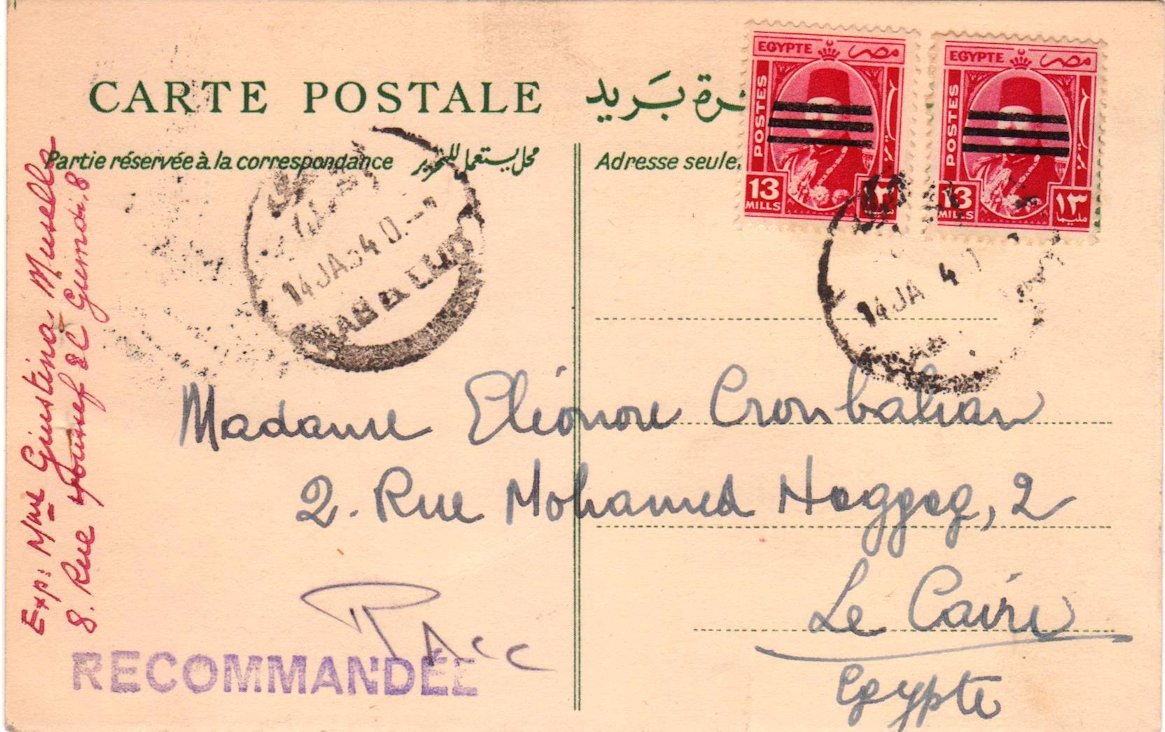 CARTE POSTALE تذكرة بريد
Partie réservée à la correspondance محل يستعمل للتحرير
Adresse seule.
EGYPTE مصر
POSTES
13 ١٣
MILLS
EGYPTE مصر
POSTES
13 ١٣
MILLS مليم
14 JA 54
14 JA 4
Exp: Mme Giustina Musella
8. Rue Youssef El Guindi, 8
Madame Eléonore Cronbahan
2. Rue Mohamed Haggag, 2
Le Caire
Egypte
R Acc
RECOMMANDÉE